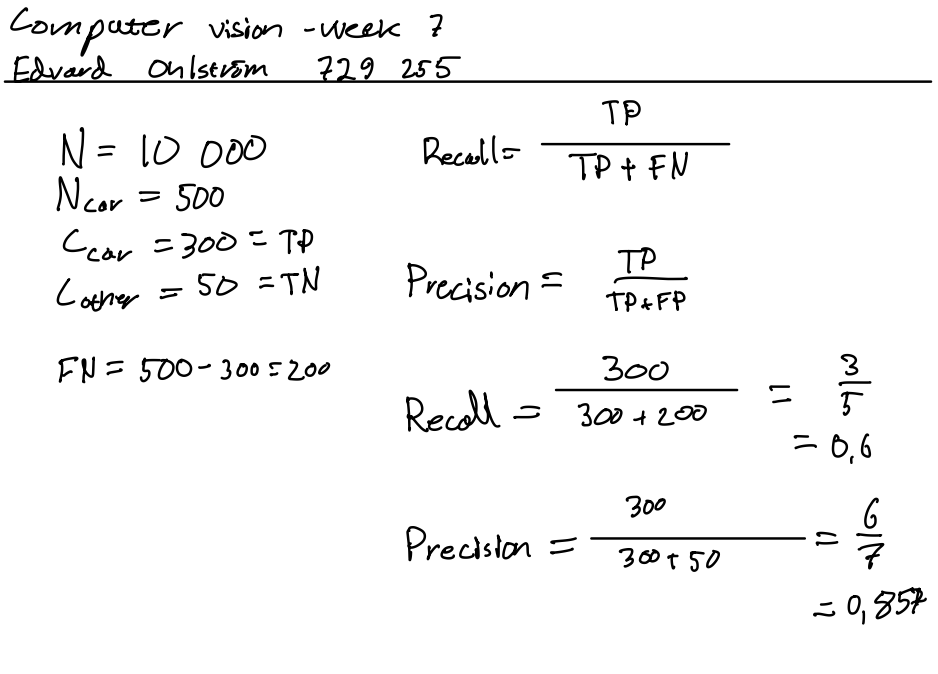 Computer vision - week 7
Edvard Ohlström 729 255
N = 10 000
N car = 500
C car = 300 = TP
C other = 50 = TN
FN = 500 - 300 = 200
Recall = TP / TP + FN
Precision = TP / TP + FP
Recall = 300 / 300 + 200 = 3 / 5
= 0,6
Precision = 300 / 300 + 50 = 6 / 7
= 0,857